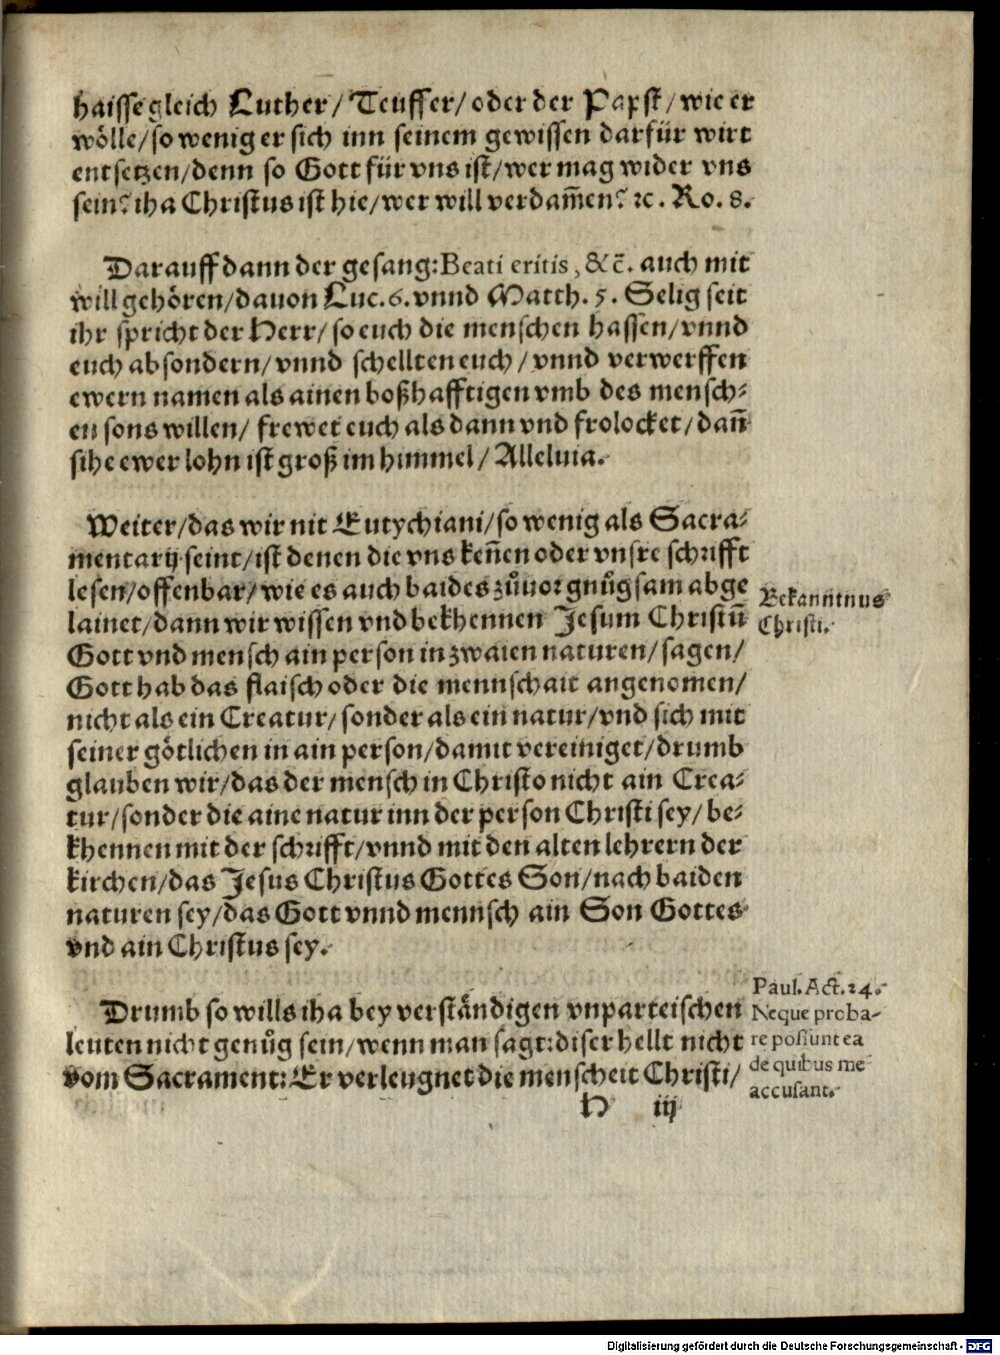 haisse gleich Luther/ Teuffer/ oder der Papst/ wie er
wölle/ so wenig er sich inn seinem gewissen darfür wirt
entsetzen/ denn so Gott für vns ist/ wer mag wider vns
sein? iha Christus ist hie/ wer will verdam̃en? ꝛc. Ro. 8.
Darauff dann der gesang: Beati eritis, &c̃. auch mit
will gehören/ dauon Luc. 6. vnnd Matth. 5. Selig seit
ihr spricht der Herr/ so euch die menschen hassen/ vnnd
euch absondern/ vnnd schellten euch/ vnnd verwerffen
ewern namen als ainen boßhafftigen vmb des mensch⸗
en sons willen/ frewet euch als dann vnd frolocket/ dañ
sihe ewer lohn ist groß im himmel/ Alleluia.
Weiter/ das wir nit Eutychiani/ so wenig als Sacra⸗
mentarij seint/ ist denen die vns keñen oder vnsre schrifft
lesen/ offenbar/ wie es auch baides zůuor gnůgsam abge
lainet/ dann wir wissen vnd bekhennen Jesum Christũ
Gott vnd mensch ain person in zwaien naturen/ sagen/
Gott hab das flaisch oder die mennschait angenomen/
nicht als ein Creatur/ sonder als ein natur/ vnd sich mit
seiner götlichen in ain person/ damit vereiniget/ drumb
glauben wir/ das der mensch in Christo nicht ain Crea⸗
tur/ sonder die aine natur inn der person Christi sey/ be⸗
khennen mit der schrifft/ vnnd mit den alten lehrern der
kirchen/ das Jesus Christus Gottes Son/ nach baiden
naturen sey/ das Gott vnnd mennsch ain Son Gottes
vnd ain Christus sey.
Bekanntnus
Christi.
Drumb so wills iha bey verständigen vnparteischen
leuten nicht genůg sein/ wenn man sagt: diser hellt nicht
vom Sacrament: Er verleugnet die menscheit Christi/
Paul. Act. 24.
Neque proba-
re possunt ea
de quibus me
accusant.
H iij
Digitalisierung gefördert durch die Deutsche Forschungsgemeinschaft - DFG